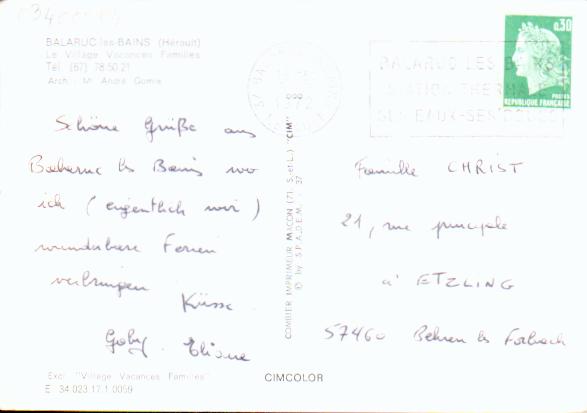 BALARUC-les-BAINS (Hérault)
Le Village Vacances Familles
Tél. (67) 78.50.21
Arch. M. André Gomis
Schöne Grüße aus
Balaruc les Bains wo
ich (eigentlich wir)
wunderbare Ferien
verbringen
Küsse
Gaby. Eliane
Excl. "Village Vacances Familles"
E 34.023.17.1.0059
COMBIER IMPRIMEUR MACON (71. S.-et-L.) "CIM"
© by S.P.A.D.E.M. - 37
CIMCOLOR
1972
BALARUC LES BAINS
STATION THERMALE
SES EAUX-SES BOUES
0,30
POSTES
REPUBLIQUE FRANÇAISE
Famille CHRIST
21, rue principale
à ETZLING
57460 Behren les Forbach